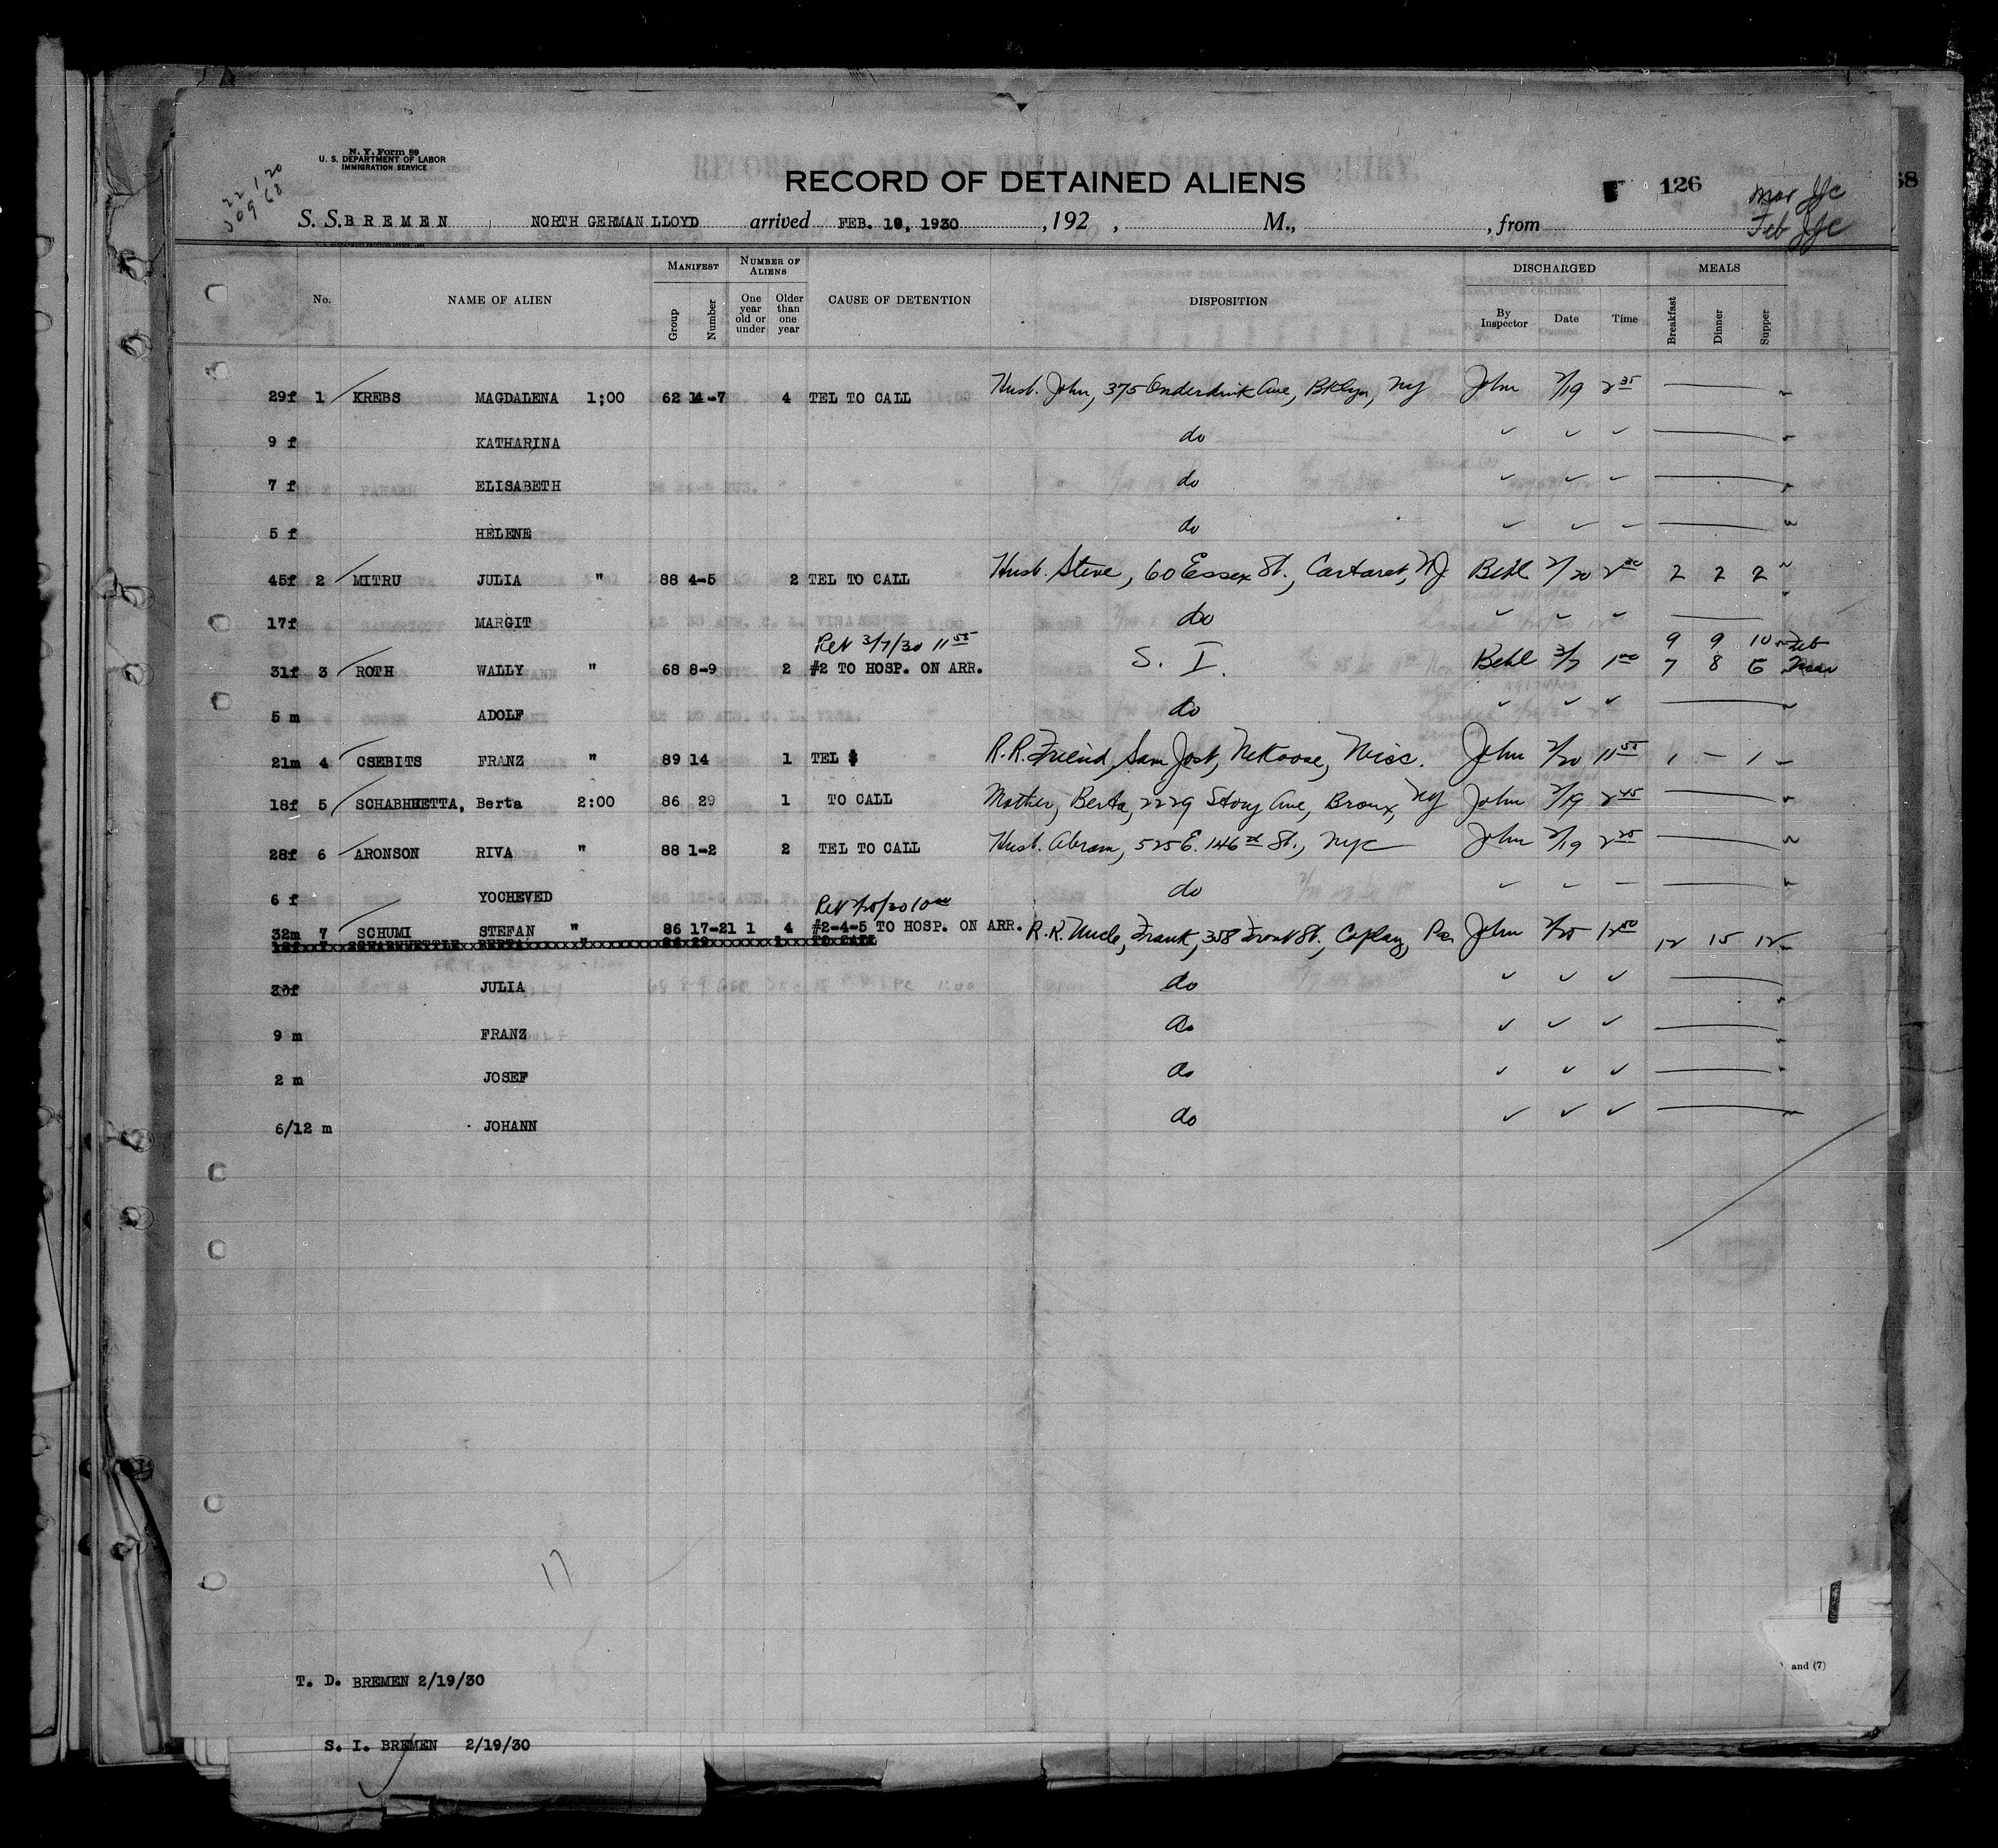 N. Y. Form 89
U. S. DEPARTMENT OF LABOR
IMMIGRATION SERVICE
RECORD OF ALIENS HELD FOR SPECIAL INQUIRY.
RECORD OF DETAINED ALIENS
126
68
Mar JJC
Feb JJC
S. S. BREMEN NORTH GERMAN LLOYD arrived FEB. 19, 1930 , 192 , M., , from
MANIFEST NUMBER OF ALIENS DISCHARGED MEALS
No. NAME OF ALIEN Group Number One year old or under Older than one year CAUSE OF DETENTION DISPOSITION By Inspector Date Time Breakfast Dinner Supper
29f 1 KREBS MAGDALENA 1;00 62 14-7 4 TEL TO CALL Husb. John, 375 Onderdonk Ave, Bklyn, NY John 2/19 2 35
9 f KATHARINA do ✓ ✓ ✓
7 f ELISABETH do ✓ ✓ ✓
5 f HELENE do ✓ ✓ ✓
45f 2 MITRU JULIA " 88 4-5 2 TEL TO CALL Husb. Steve, 60 Essex St., Carteret, NJ Behl 2/20 2 2 2
17f MARGIT do ✓ ✓ ✓
Ret 3/7/30 11 55 9 9 10 Feb
31f 3 ROTH WALLY " 68 8-9 2 #2 TO HOSP. ON ARR. S. I. Behl 3/7 1 00 7 8 6 Mar
5 m ADOLF do ✓ ✓ ✓
21m 4 CSEBITS FRANZ " 89 14 1 TEL $ R.R. Friend, Sam Jost, Nekoose, Wisc. John 2/20 11 55 1 – 1
18f 5 SCHABHUETTA, Berta 2:00 86 29 1 TO CALL Mother, Berta, 2229 Story Ave, Bronx, NY John 2/19 2 45
28f 6 ARONSON RIVA " 88 1-2 2 TEL TO CALL Husb. Abram, 525 E. 146th St., NYC John 2/19 2 25
6 f YOCHEVED do ✓ ✓ ✓
Ret 2/25/30 10 00
32m 7 SCHUMI STEFAN " 86 17-21 1 4 #2-4-5 TO HOSP. ON ARR. R.R. Uncle, Frank, 358 Front St., Coplay, Pa. John 2/25 12 50 12 15 12
18f 7 SCHABHUETTLE BERTA " 86 29 1 TO CALL
30f JULIA do ✓ ✓ ✓
9 m FRANZ do ✓ ✓ ✓
2 m JOSEF do ✓ ✓ ✓
6/12 m JOHANN do ✓ ✓ ✓
17
and (7)
T. D. BREMEN 2/19/30
S. I. BREMEN 2/19/30